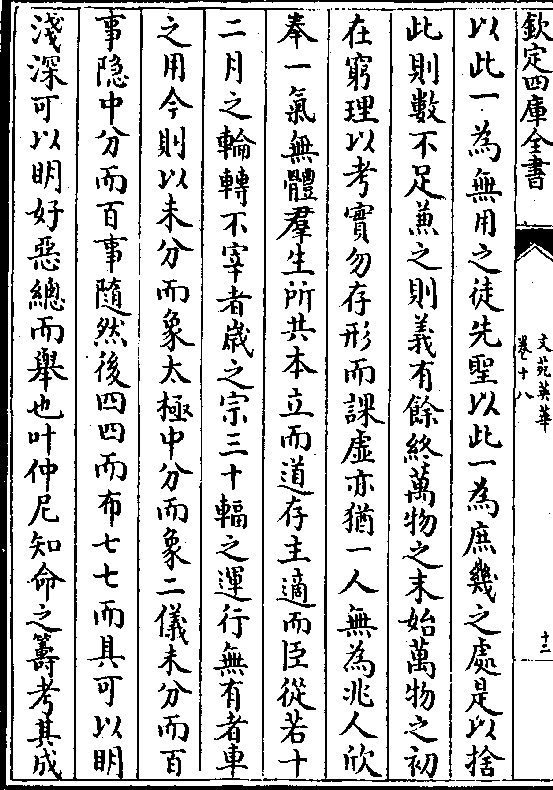 欽定四庫全書
文苑英華
卷十八
十三
以此一為無用之徒先聖以此一為庶幾之處是以捨
此則數不足兼之則義有餘終萬物之末始萬物之初
在窮理以考實勿存形而課虛亦猶一人無為兆人欣
奉一氣無體羣生所共本立而道存主適而臣從若十
二月之輪轉不宰者歲之宗三十輻之運行無有者車
之用今則以未分而象太極中分而象二儀未分而百
事隱中分而百事隨然後四四而布七七而具可以明
淺深可以明好惡總而舉也叶仲尼知命之籌考其成